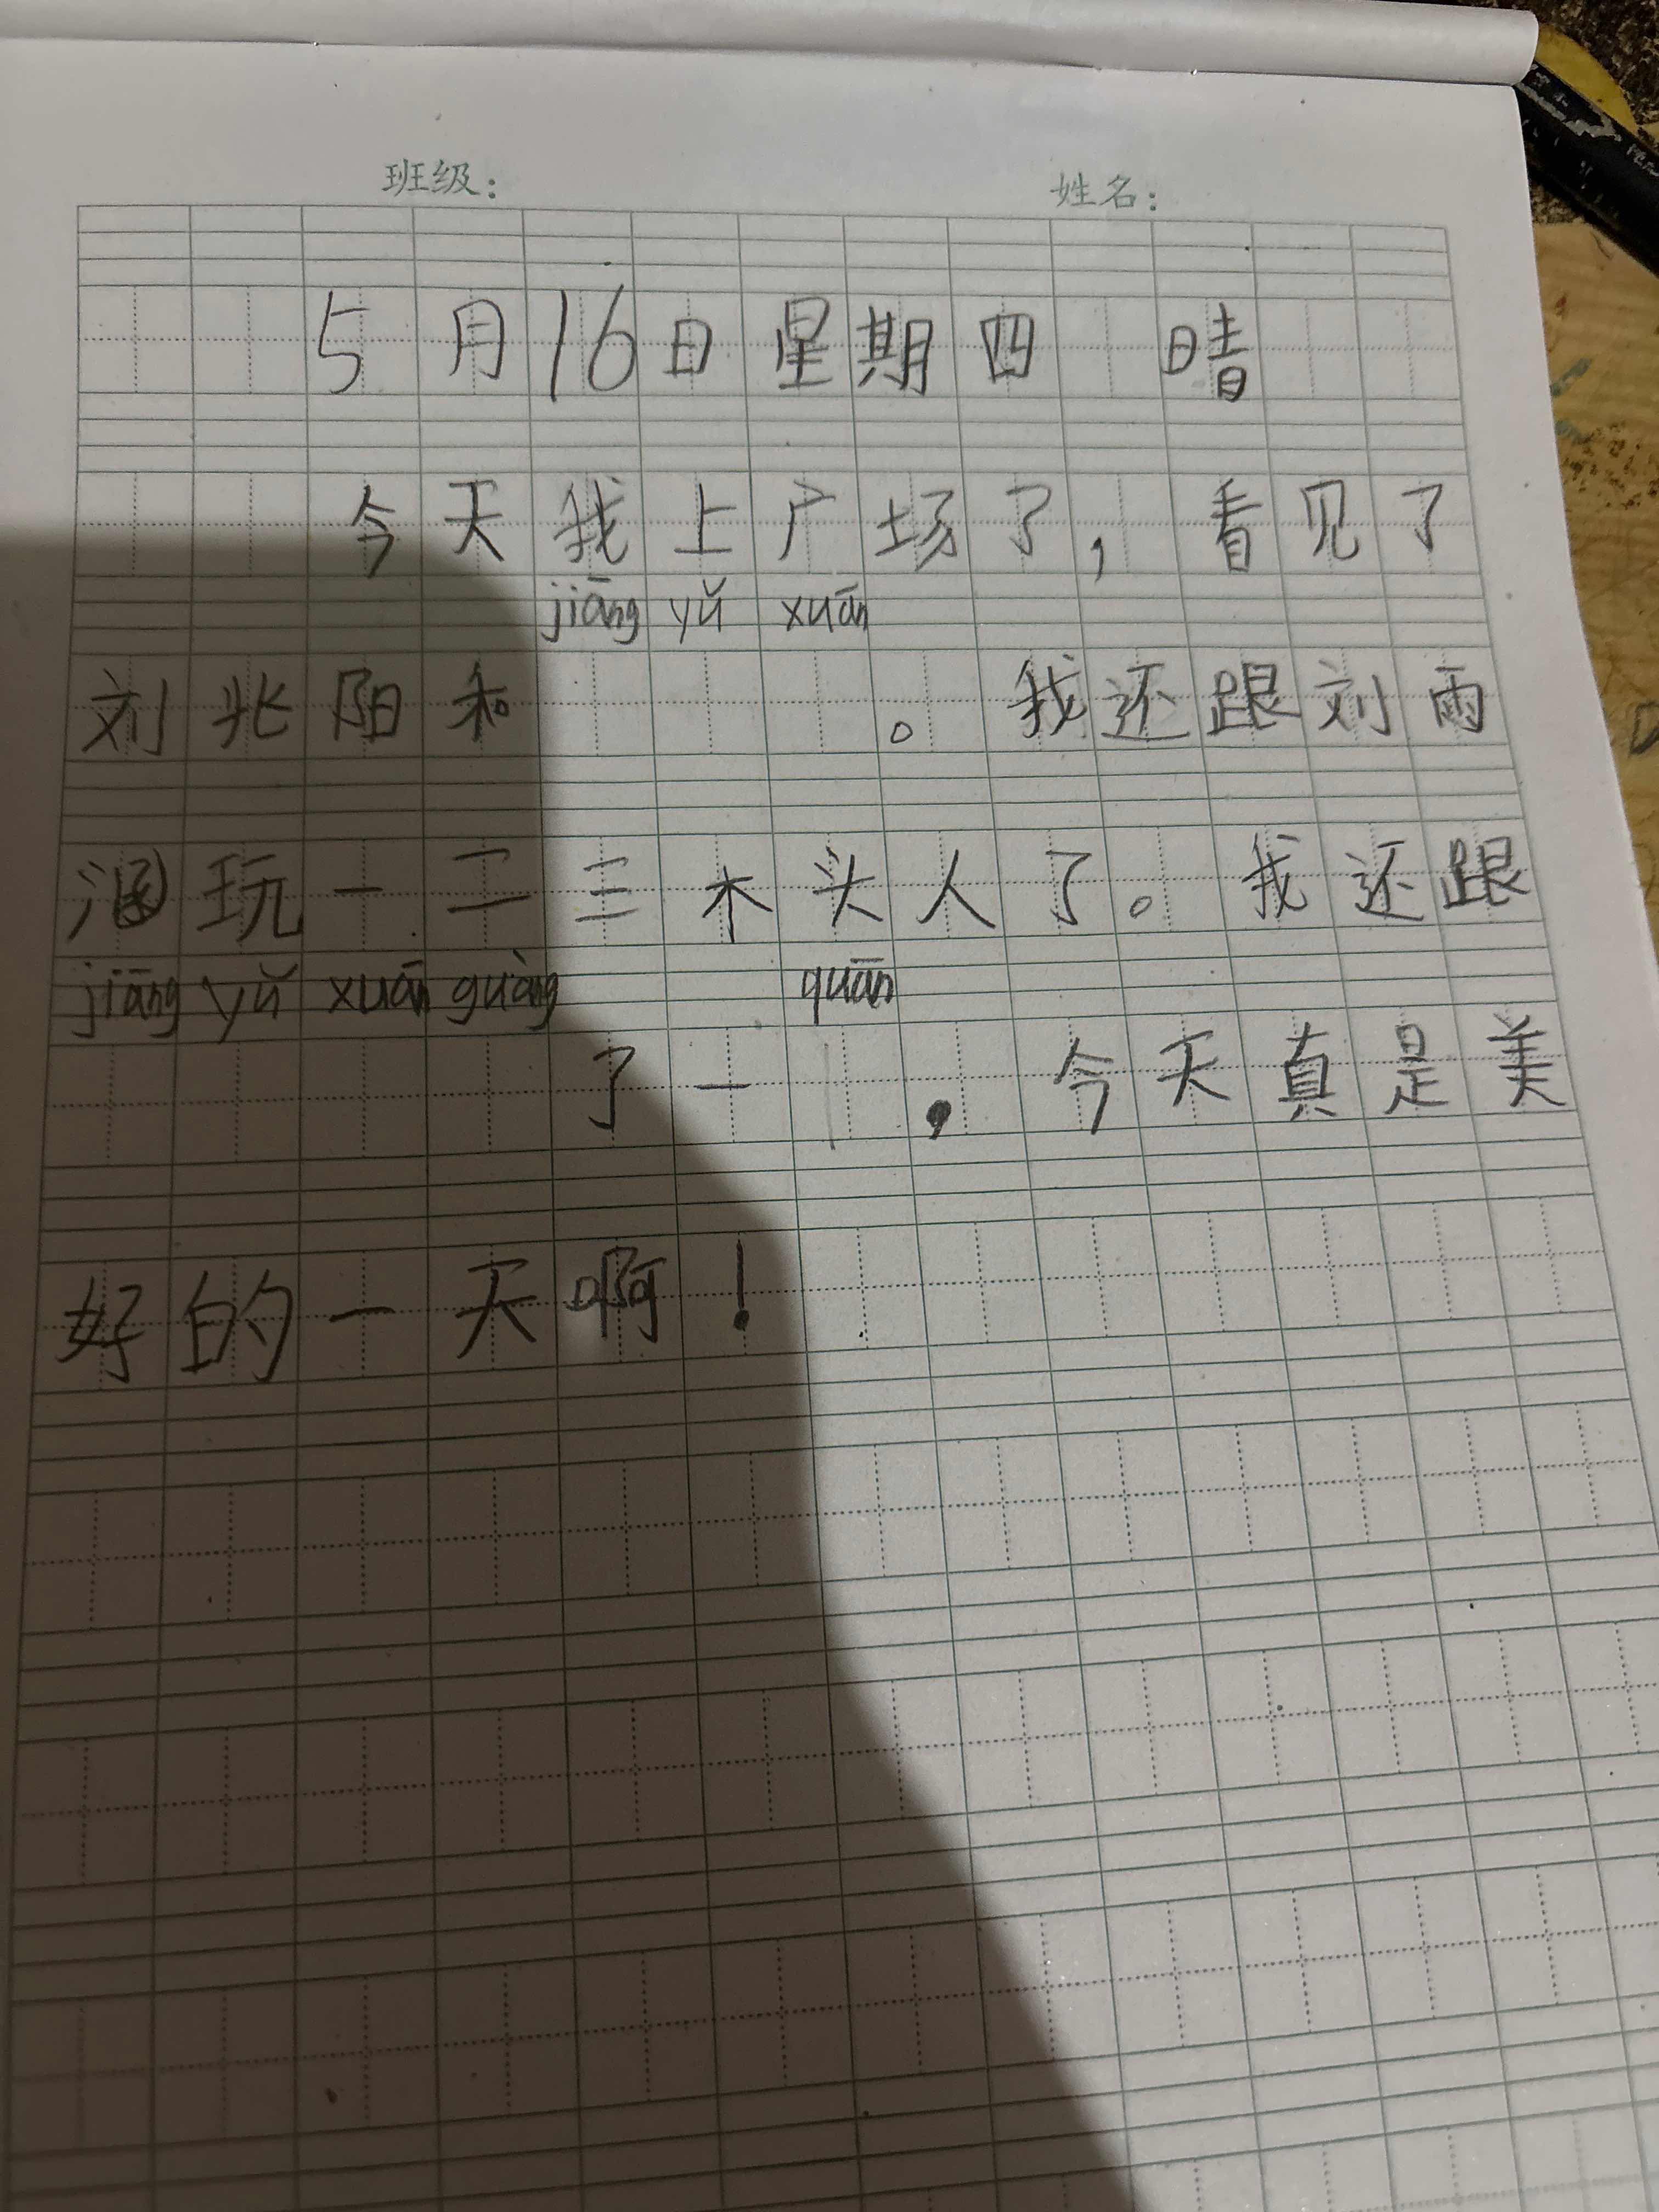 班级： 姓名：
5月16日星期四 晴
今天我上广场了，看见了
jiāng yǔ xuān
刘兆阳和 。我还跟刘雨
涵玩一二三木头人了。我还跟
jiāng yǔ xuān guàng quān
了一 ，今天真是美
好的一天啊！